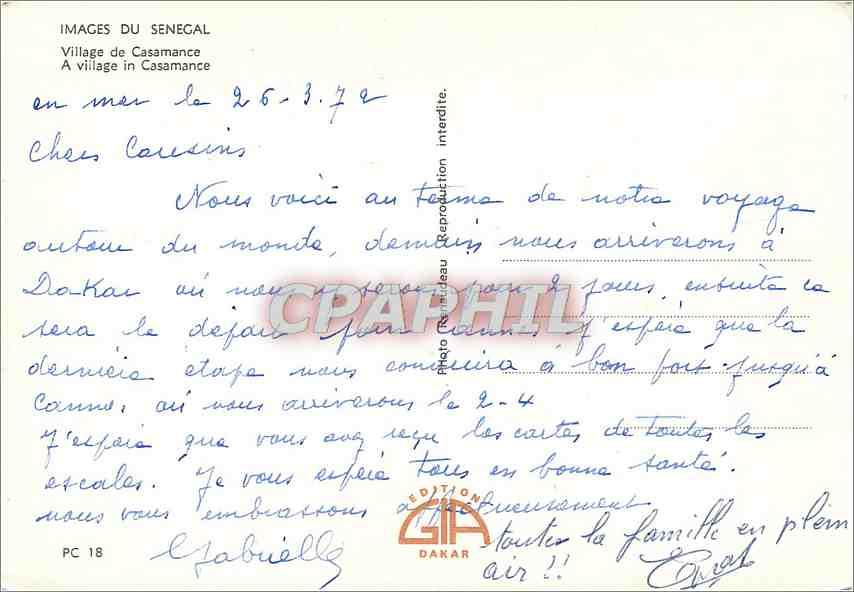 IMAGES DU SENEGAL
Village de Casamance
A village in Casamance
en mer le 26-3.72
Chers Cousins
Nous voici au terme de notre voyage
autour du monde, demain nous arriverons à
Dakar où nous serons pour 2 jours, ensuite ca
sera le départ pour Cannes J'espère que la
dernière étape nous conduira à bon port jusqu'à
Cannes où nous arriverons le 2-4
J'espère que vous avez reçu les cartes de toutes les
escales. Je vous espère tous en bonne santé.
nous vous embrassons affectueusement
toutes la famille en plein
air !!
Gabrielle
PC 18
EDITION
GIA
DAKAR
Photo Renaudeau Reproduction interdite.
CPAPHIL